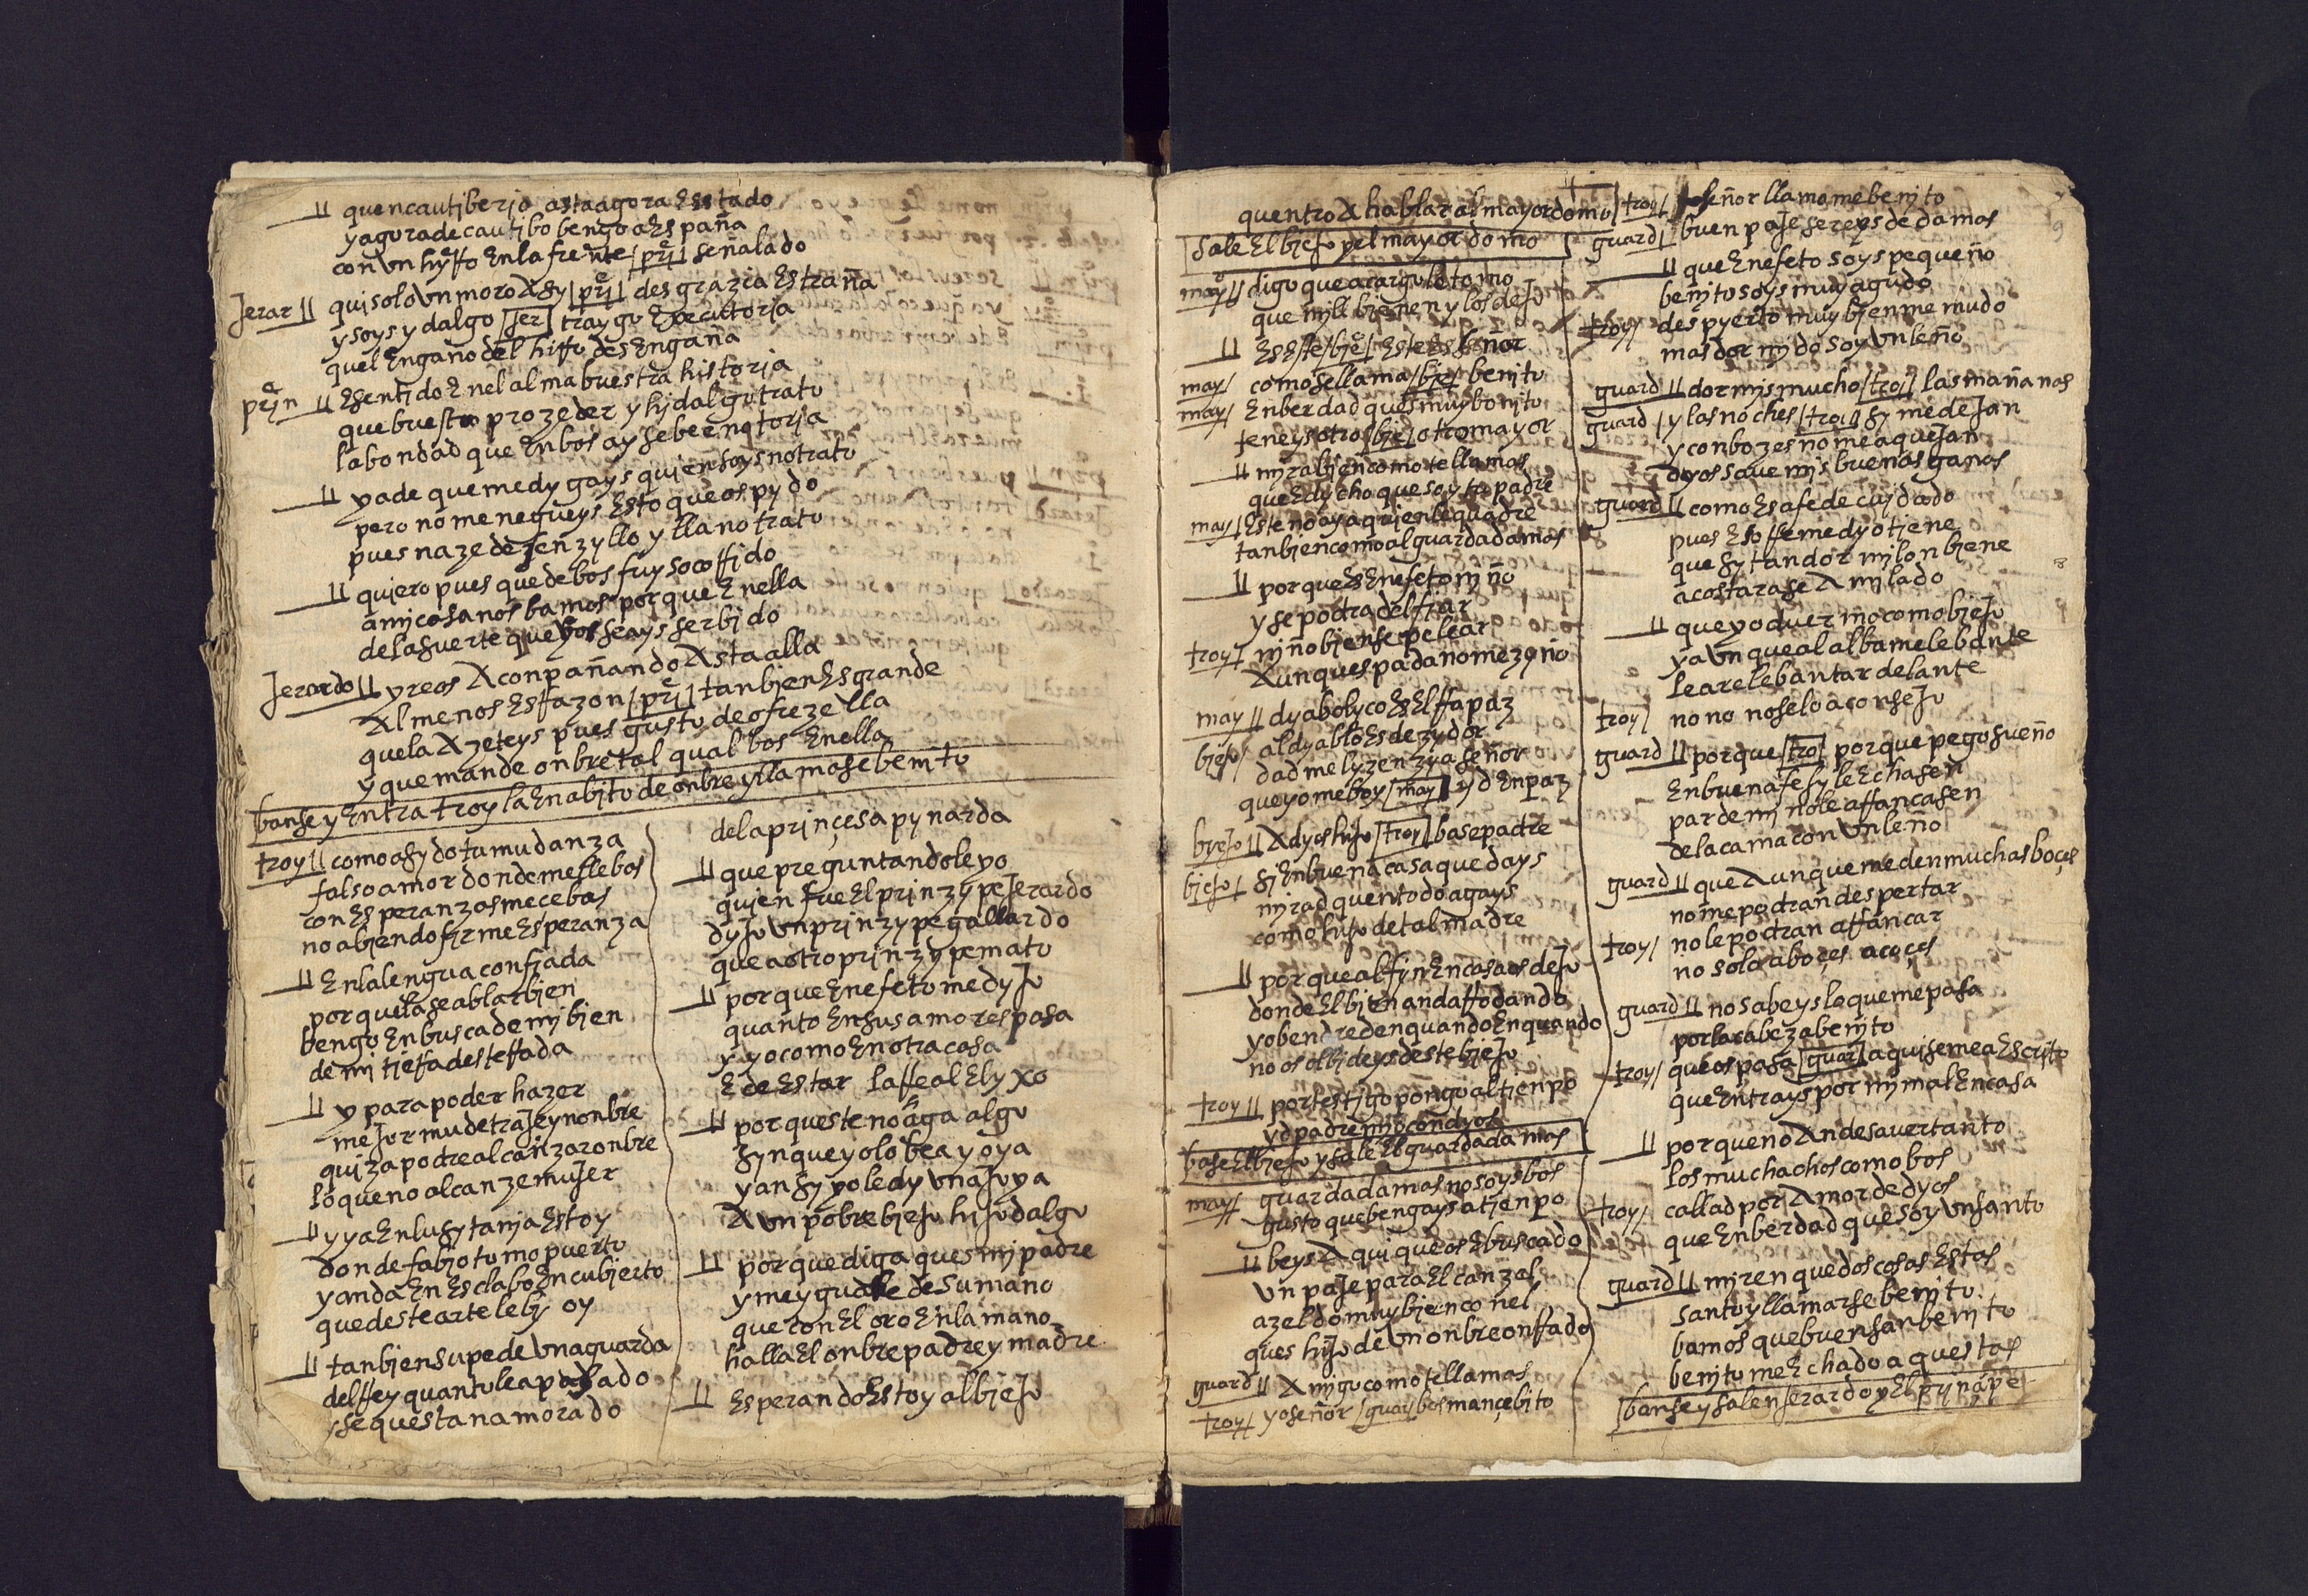 quencautiberio asta agora Esstado
y agora de cautibo bengo a España
con un hyrro En la frente / pri / señalado
Jerar quiso lo un moro Asy / pri / desgrazia Estraña
y soys ydalgo / Jer / traygo Executoria
quel Engaño del hirro desEngaña
prin E sentido En el alma buestra historia
que buestro prozeder y hidalgo trato
la bondad que En bos ay se be notoria
ya de que me dygays quien soys no trato
pero no me negueys Esto que os pydo
pues naze de senzyllo y llano trato
quiero pues que de bos fuy socorrido
a mi casa nos bamos porque Enella
de la suerte que bos seays serbido
Jerardo yreos Aconpañando Asta alla
Al menos Es razon / pri / tanbien Es grande
que la Azeteys pues gusto de ofrezella
y que mande onbre tal qual bos Enella
banse y Entra troyla En abito de onbre y llamase benito
troy como asydo tu mudanza
falso amor donde me llebas
con Esperanzas me cebas
no abiendo firme Esperanza
En la lengua confiada
porque la se ablar bien
bengo En busca de mi bien
de mi tierra desterrada
y para poder hazer
mejor mude traje y nonbre
quiza podre alcanzar onbre
lo que no alcanze mujer
y ya En lusytania Estoy
donde fabio tomo puerto
y anda En Esclabo Encubierto
que deste arte le bi oy
tanbien supe de una guarda
del rrey quanto le a pasado
se questa namorado
de la prinçesa pynarda
que preguntandole yo
quien fue El prinzype Jerardo
dyJo un prinzype gallardo
que a otro prinzype mato
porque En efeto me dyJo
quanto En sus amores pasa
y yo como En otra casa
E de Estar la rreal Elyxo
por queste no aga algo
syn que yo lo bea y oya
y ansy yo le dy una Joya
A un pobre bieJo hiJodalgo
porque diga ques mi padre
y me yguale de su mano
que con El oro En la mano
halla El onbre padre y madre
Esperando Estoy al bieJo
quentro A hablar al mayordomo
Sale El bieJo y el mayordomo
may digo que a cargo le tomo
que mill bienen y los deJo
Es Este / bie / Este Es señor
may como se llama / bie / benito
may En berdad ques muy bonito
teneys otro / bie / otro mayor
mira bien como te llamas
que E dycho que soy tu padre
may Este no ay a quien le quadre
tanbien como al guardadamas
porque Es En efeto niño
y se podra del fiar
troy niño bien se pelear
Aunque spada no me ziño
may dyabolyco Es El rrapaz
bieJo al dyablo Es dezydor
dadme lyzenzya señor
que yo me boy / may / yd En paz
bieJo Adyos hiJo / troy / base padre
bieJo sy En buena casa quedays
mirad quen todo agays
como hiJo de tal madre
porque al fyn En casa os deJo
donde El bien anda rrodando
yo bendre de en quando En quando
no os olbideys deste bieJo
troy por testigo pongo al tienpo
yd padre mio con dyos
base El bieJo y sale El guardadamas
may guardadamas no soys bos
gusto que bengays a tienpo
beys Aqui que os E buscado
un paJe para El canzel
azeldo muy bien con el
ques hiJo de un onbre onrrado
guard Amigo como te llamas
troy yo señor / guar / bos mançebito
troy señor llamome benito
guard buen paJe sereys de damas
que En efeto soys pequeño
benito soys muy agudo
troy despyerto muy bien me mudo
mas dormido soy un leño
guard dormis mucho / troy / las mañanas
guard y las noches / troi / sy me deJan
y con bozes no me aqueJan
dyos save mis buenas ganas
guard como Es a fe de cuidado
pues Eso rremedyo tiene
que sy tan dormilon biene
acostarase A mi lado
que yo duermo como bieJo
y aunque al alba me lebante
le are lebantar delante
troy no no no se lo aconseJo
guard porque / tro / porque pego sueño
En buena fe sy le Echasen
par de mi no le arrancasen
de la cama con un leño
guard que Aunque me den muchas boçes
no me podran despertar
troy no le podran arrancar
no solo a boçes a coçes
guard no sabeys lo que me pasa
por la cabeza benito
troy que os pasa / guar / a qui se me a Escrito
que Entrays por mi mal En casa
porque no Andes a uer tanto
los muchachos como bos
troy callad por Amor de dyos
que En berdad que soy un santo
guard miren que dos cosas Estas
santo y llamarse benito
bamos que buen sanbenito
benito me Echado a questas
banse y salen Jerardo y El prinçipe